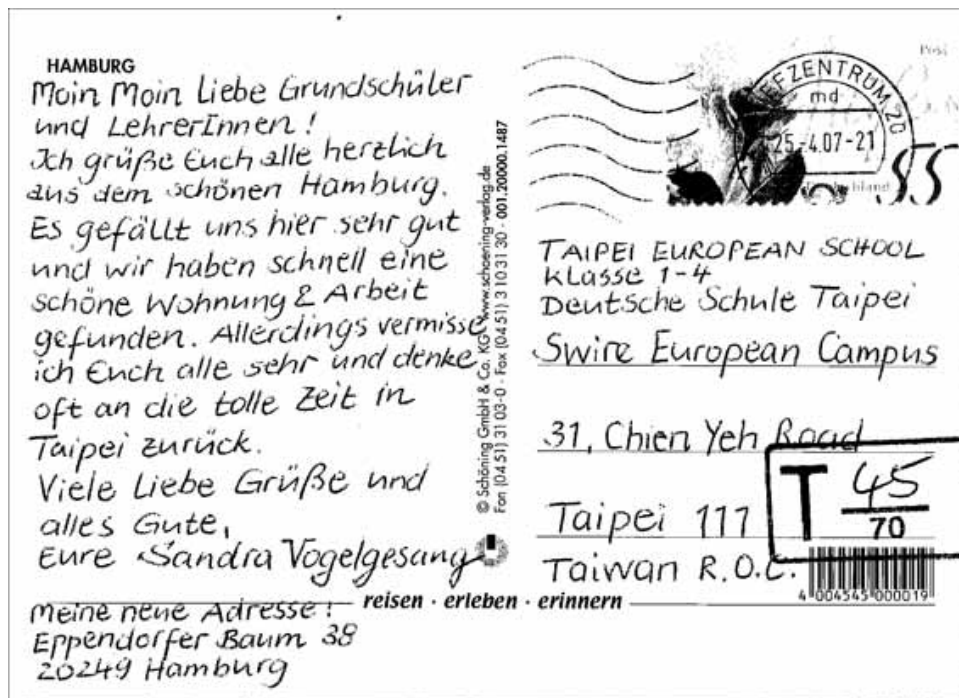 HAMBURG
Moin Moin Liebe Grundschüler
und LehrerInnen!
Ich grüße Euch alle herzlich
aus dem schönen Hamburg.
Es gefällt uns hier sehr gut
und wir haben schnell eine
schöne Wohnung & Arbeit
gefunden. Allerdings vermisse
ich Euch alle sehr und denke
oft an die tolle Zeit in
Taipei zurück.
Viele Liebe Grüße und
alles Gute,
Eure Sandra Vogelgesang
Meine neue Adresse!
Eppendorfer Baum 38
20249 Hamburg
© Schöning GmbH & Co. KG · www.schoening-verlag.de
Fon (04 51) 31 03-0 · Fax (04 51) 3 10 31 30 · 001.20000.1487
reisen · erleben · erinnern
Post
EFZENTRUM 20
md
25.-4.07-21
55
TAIPEI EUROPEAN SCHOOL
Klasse 1-4
Deutsche Schule Taipei
Swire European Campus
31, Chien Yeh Road
Taipei 111
Taiwan R.O.C.
T 45
70
4 004545 000019